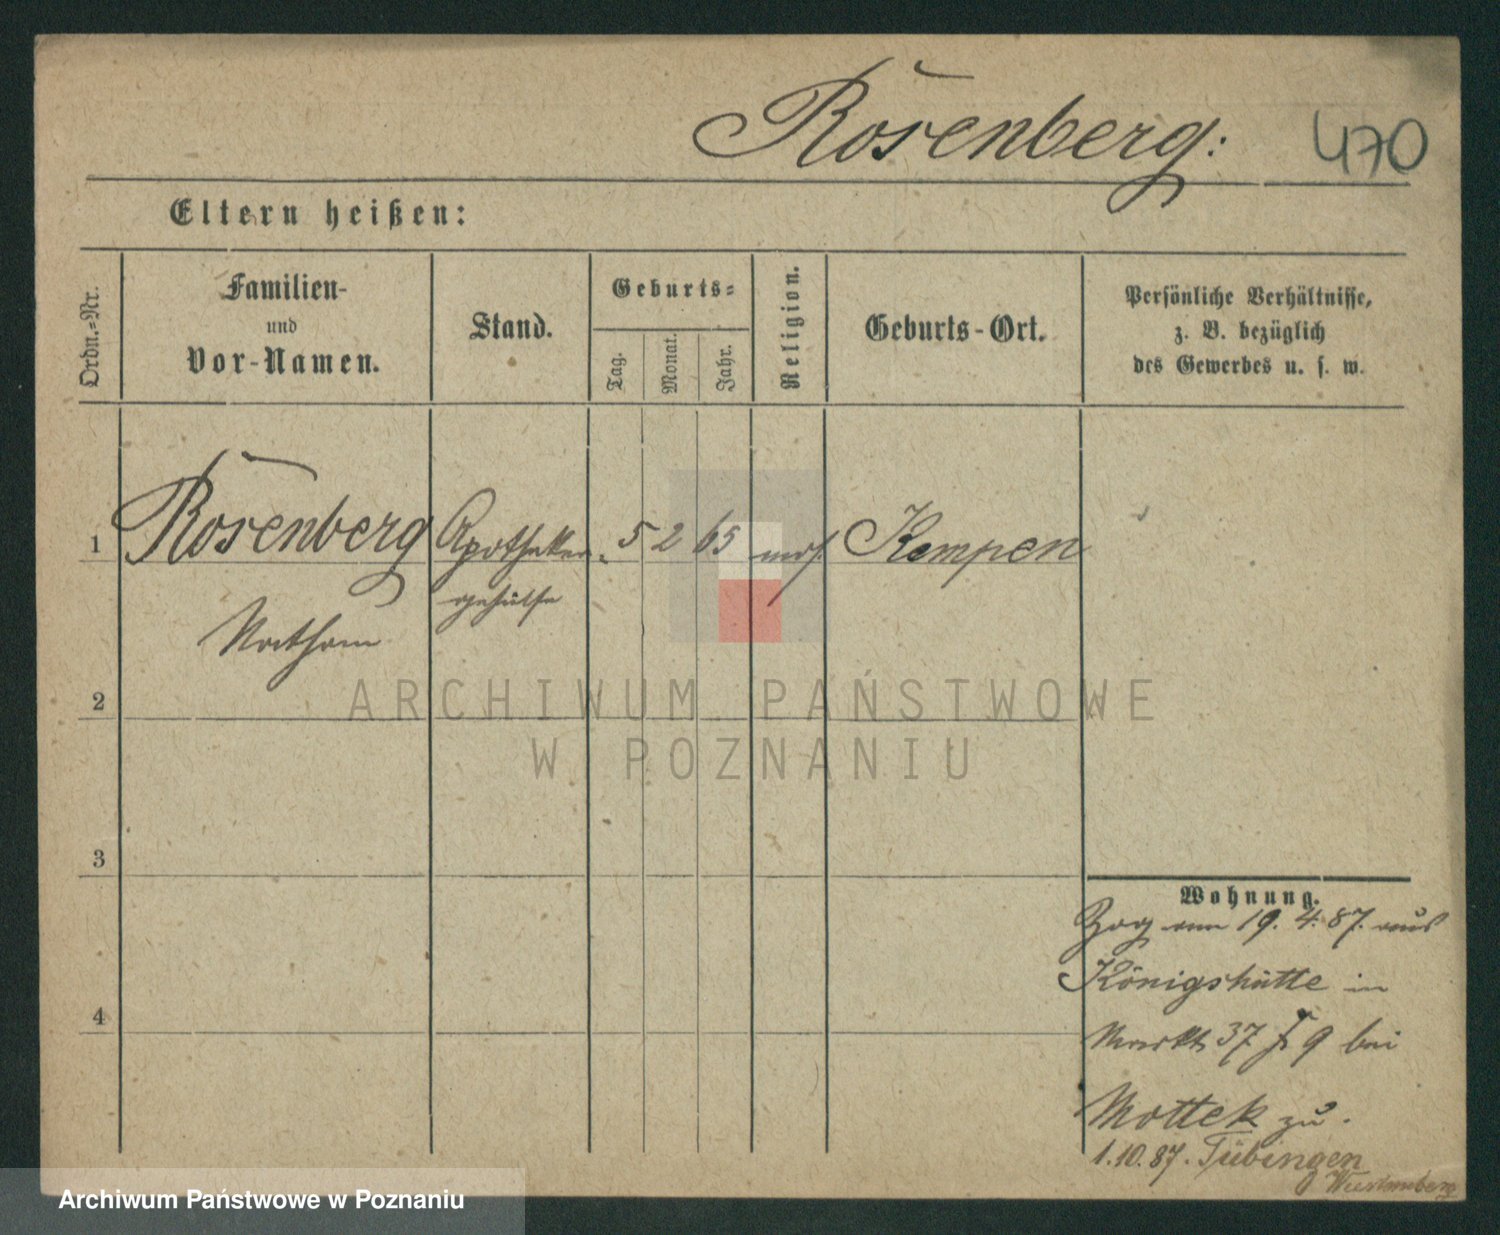 Rosenberg:
470
Eltern heißen:
Ordn.=Nr.
Familien-
und
Vor-Namen.
Stand.
Geburts=
Tag.
Monat.
Jahr.
Religion.
Geburts-Ort.
Persönliche Verhältnisse,
z. B. bezüglich
des Gewerbes u. s. w.
1
Rosenberg
Nathan
Apotheker-
gehülfe
5
2
65
mos.
Kempen
2
3
4
Wohnung.
Zog am 19. 4. 87. aus
Königshütte in
Markt 37 9 bei
Mottek zu.
1.10.87. Tübingen
Wurtemberg
ARCHIWUM PAŃSTWOWE
W POZNANIU
Archiwum Państwowe w Poznaniu